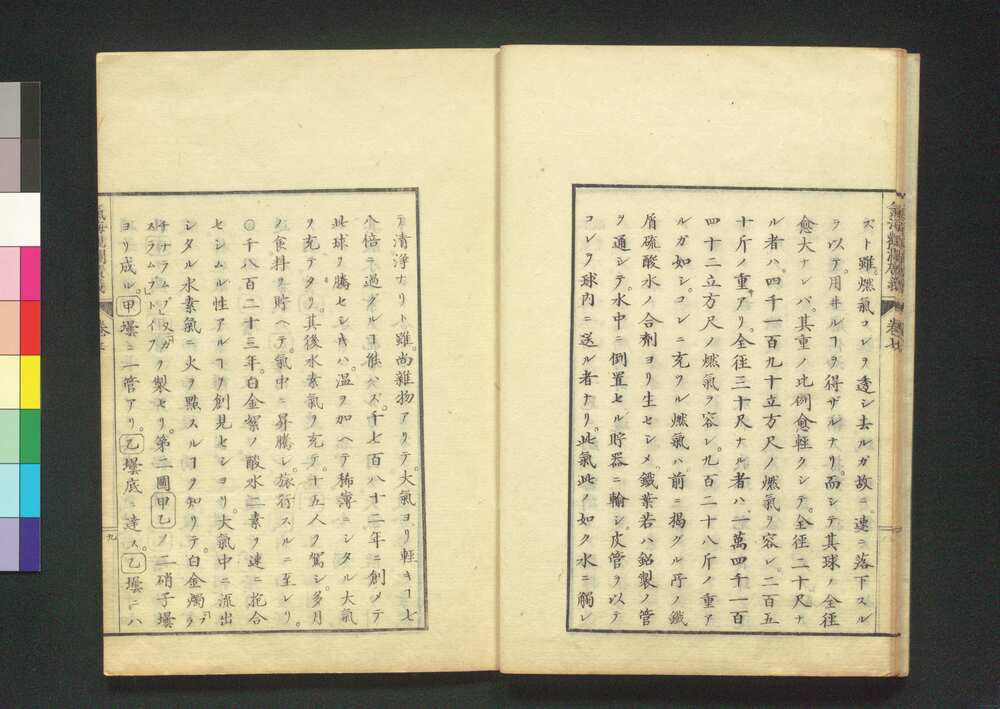 スト雖。燃氣コレヲ透シ去ルガ故ニ。速ニ落下スル
ヲ以テ。用ヰルヿヲ得ザルナリ。而シテ其球ノ全徑
愈大ナレバ。其重ノ比例愈輕クシテ。全徑二十尺ナ
ル者ハ。四千一百九十立方尺ノ燃氣ヲ容レ。二百五
十斤ノ重アリ。全徑三十尺ナル者ハ。一萬四千一百
四十二立方尺ノ燃氣ヲ容レ。九百二十八斤ノ重ア
ルガ如シ。コレニ充ツル燃氣ハ。前ニ揭グル所ノ鐵
屑硫酸水ノ合劑ヨリ生セシメ。鐵葉若ハ鉛製ノ管
ヲ通シテ。水中ニ倒置セル貯器ニ輸シ。皮管ヲ以テ
コレヲ球内ニ送ル者ナリ。此氣此ノ如ク水ニ觸レ
氣海觀瀾廣義
卷七
テ清淨ナリト雖。尚雜物アリテ。大氣ヨリ輕キヿ七
八倍ニ過グルヿ能ハズ。千七百八十二年ニ創メテ
此球ヲ騰セシ𪜈ハ。温ヲ加ヘテ稀薄ニシタル大氣
ヲ充テタリ。其後水素氣ヲ充テ。十五人ヲ駕シ。多月
ノ食料ヲ貯ヘテ。氣中ニ昇騰シ。旅行スルニ至レリ。
○千八百二十三年。白金絮ノ酸水二素ヲ速ニ抱合
セシムル性アルヿヲ創見セシヨリ。大氣中ニ流出
シタル水素氣ニ火ヲ點スルヿヲ知リテ。白金燭「プラ
チナラムプ」又「ガスラムプ」トイフヲ製セリ。第二圖甲乙ノ二硝子壜
ヨリ成ル。甲壜ニ一管アリ。乙壜底ニ達ス。乙壜ニハ
九